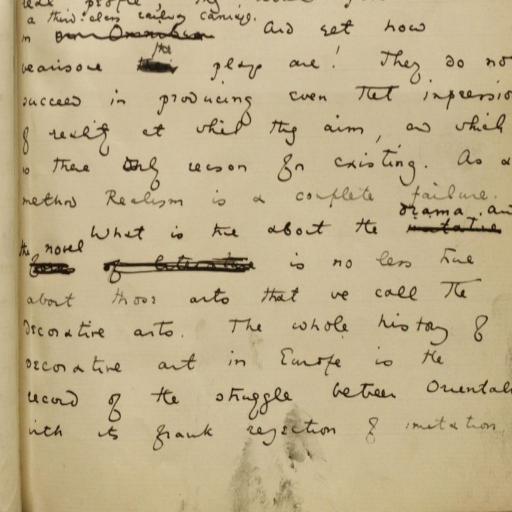 a third class railway carriage.
in an Omnibus And yet how
wearisome the plays are! They do not
succeed in producing even that impression
of reality at which they aim, and which
is there only reason for existing. As a
method Realism is a complete failure.
drama, and
What is true about the
the novel is no less true
about those arts that we call the
Decorative arts. The whole history of
Decorative art in Europe is the
record of the struggle between Orientalism
with its frank rejection of imitation,